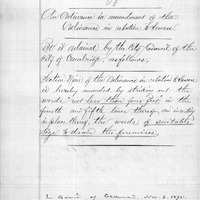 An Ordinance in amendment of the
Ordinance in relation to Sewers
Be it ordained by the City Council of the
City of Cambridge, as follows.
Section Nine of the Ordinance in relation to Sewers
is hereby amended by striking out the
words not less than four feet, in the
fourth and fifth lines thereof and inserting
in place thereof, the words, of suitable
size to drain the premises.
In Board of Nov. 6, 1872.